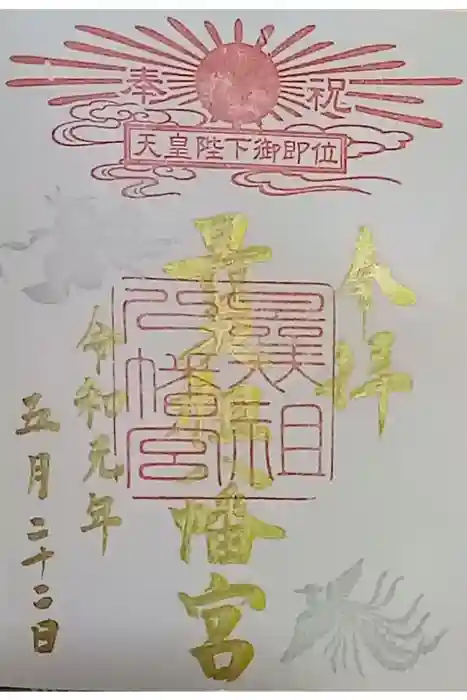 奉祝
天皇陛下御即位
奉拝
曩祖八幡宮
曩祖
八幡宮
令和元年
五月二十二日